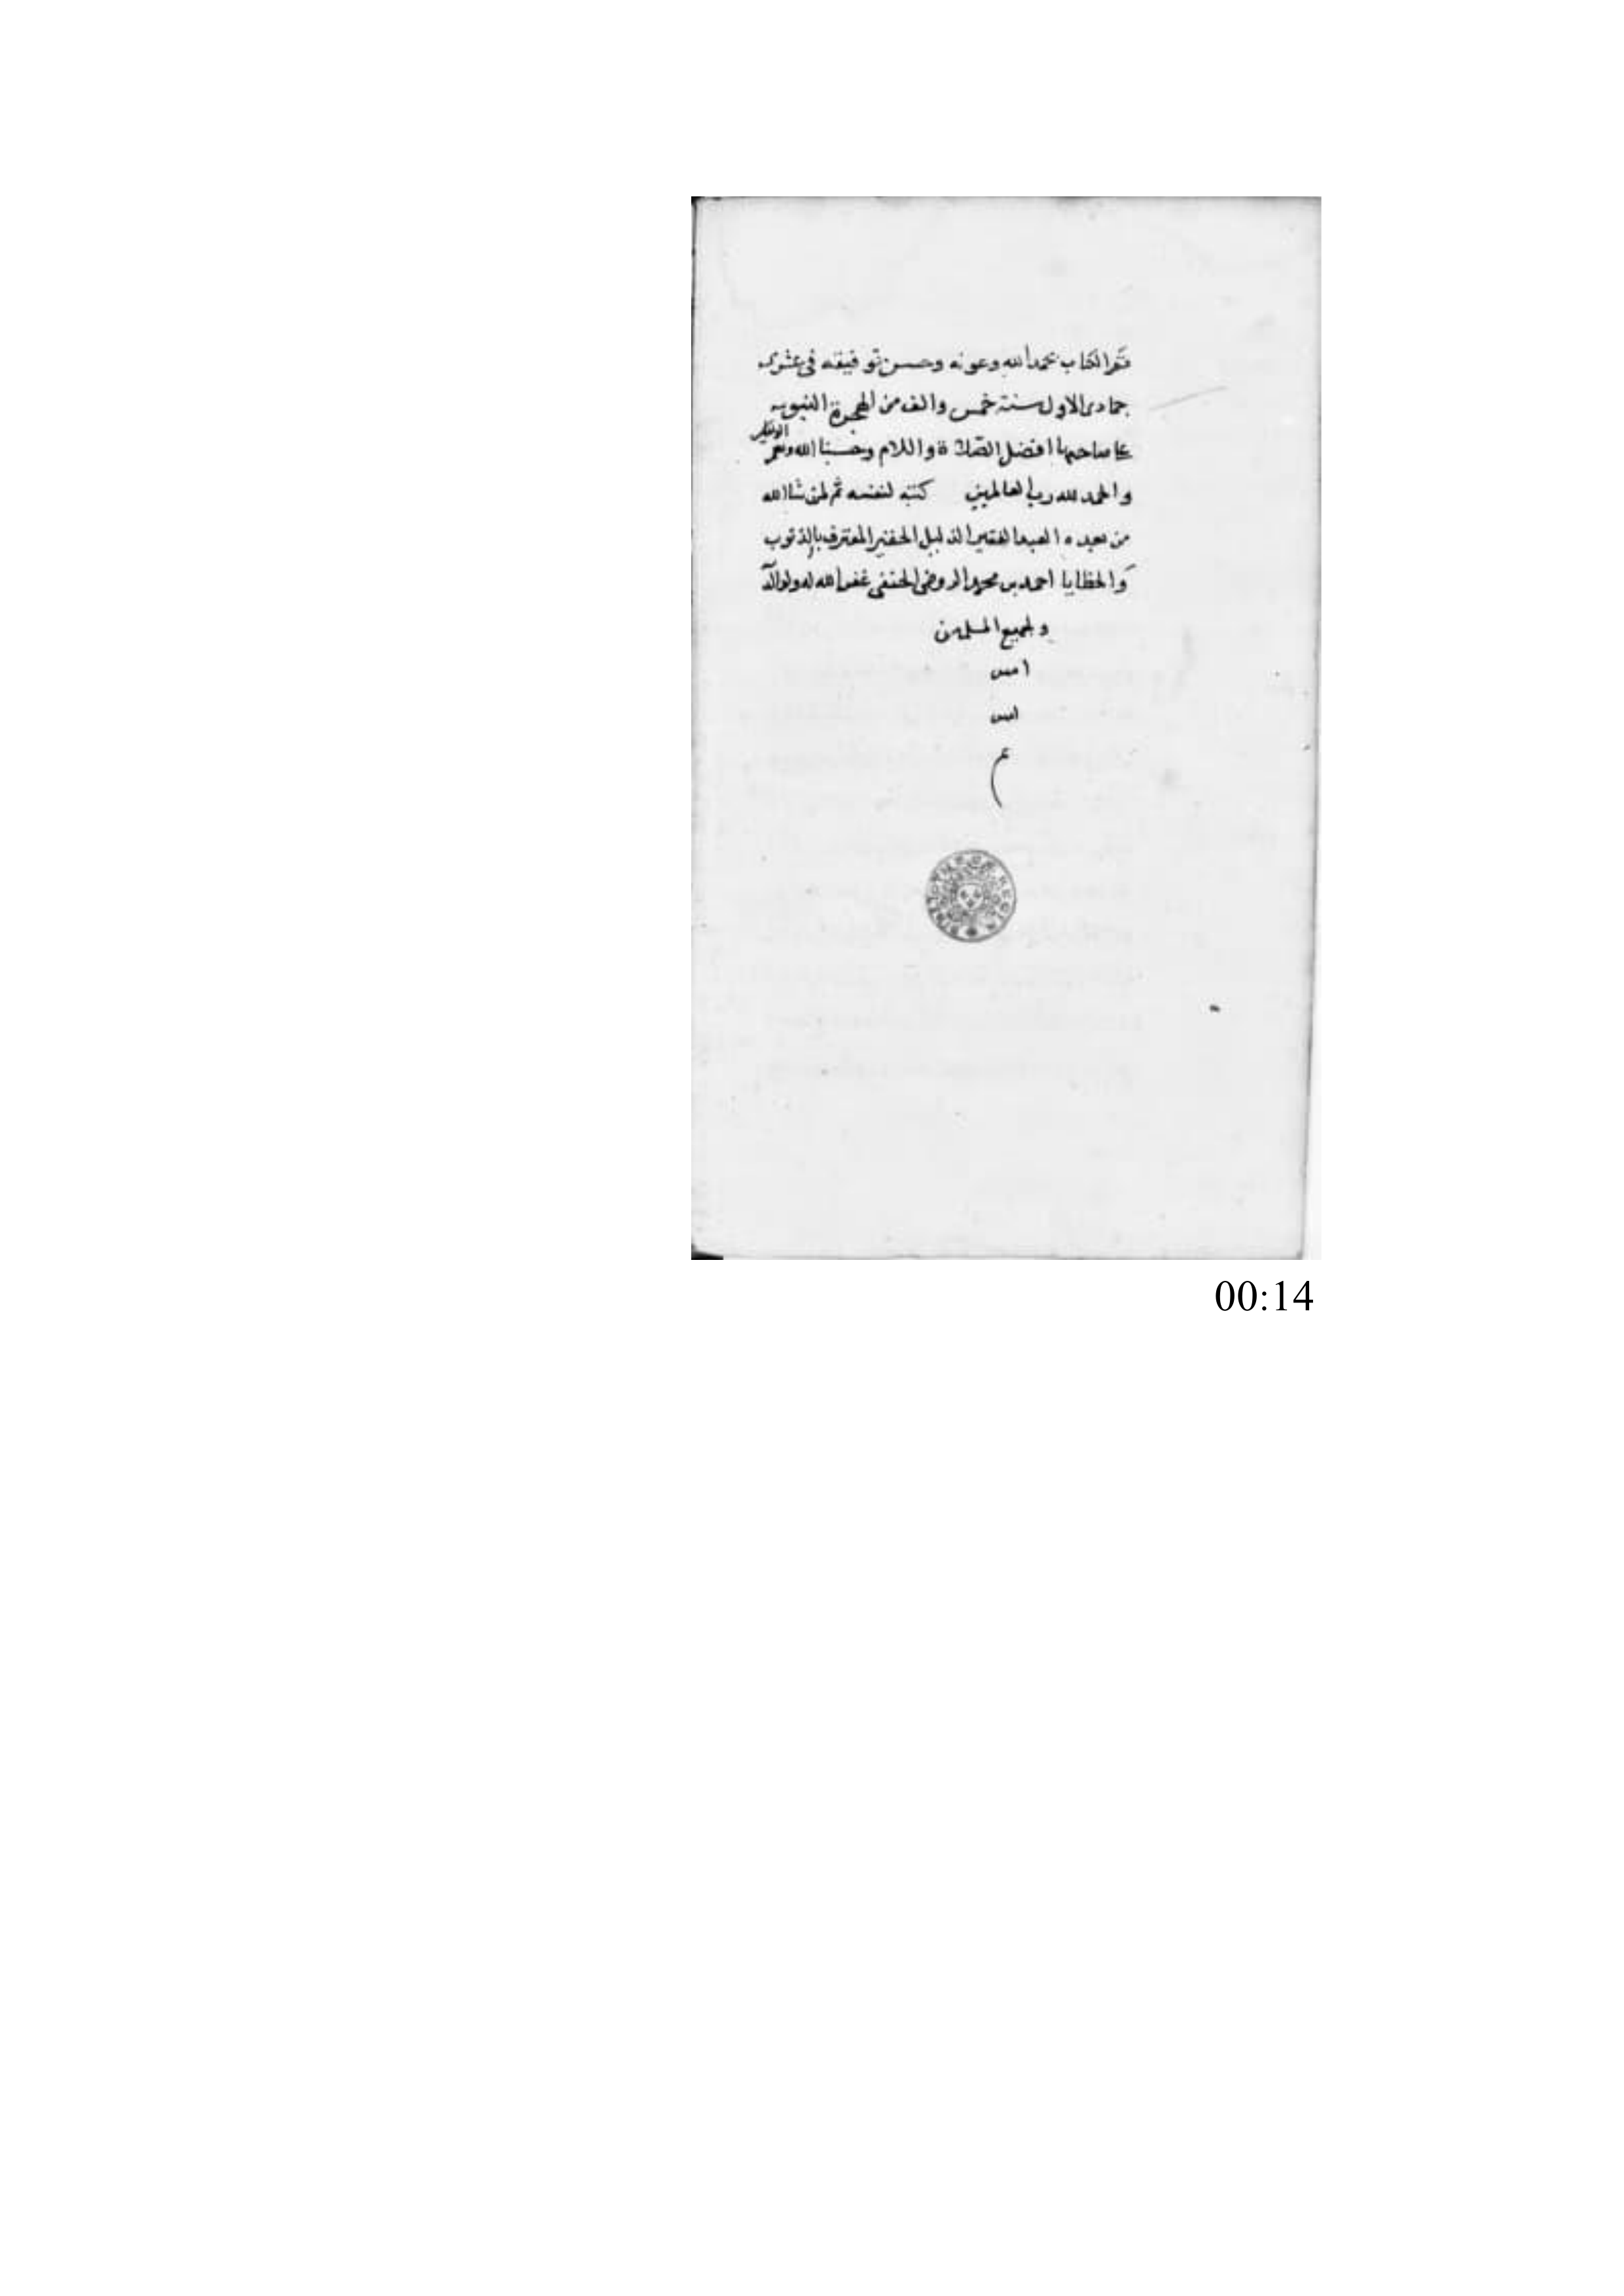 تم الكتاب بحمد الله وعونه وحسن توفيقه في عشرى
جمادى الاول سنة خمس والف من الهجرة النبويه
على صاحبها افضل الصلاة واللام وحسبنا الله ونعم الوكيل
والحمد لله رب العالمين كتبه لنفسه ثم لمن شا الله
من بعيده العبد الفقير الذليل الحقير المعترف بالذنوب
والخطايا احمد بن محمد الحنفى غفر الله له ولوالد
ولجميع المسلمين
امين
امين
م
00:14